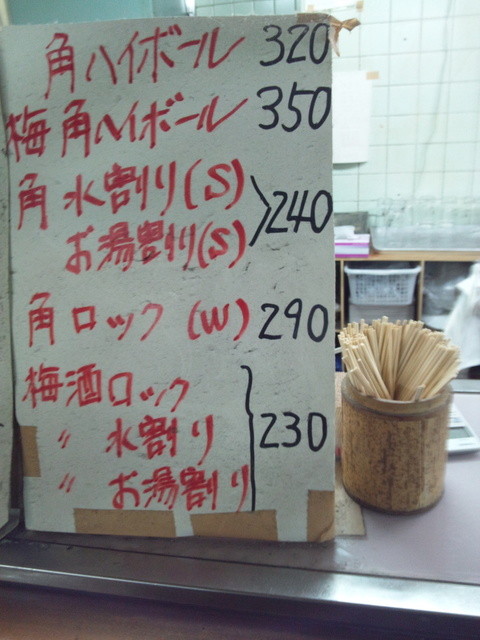 角ハイボール 320
梅角ハイボール 350
角 水割り(S)
お湯割り(S) 240
角ロック (W) 290
梅酒ロック
〃 水割り 230
〃 お湯割り